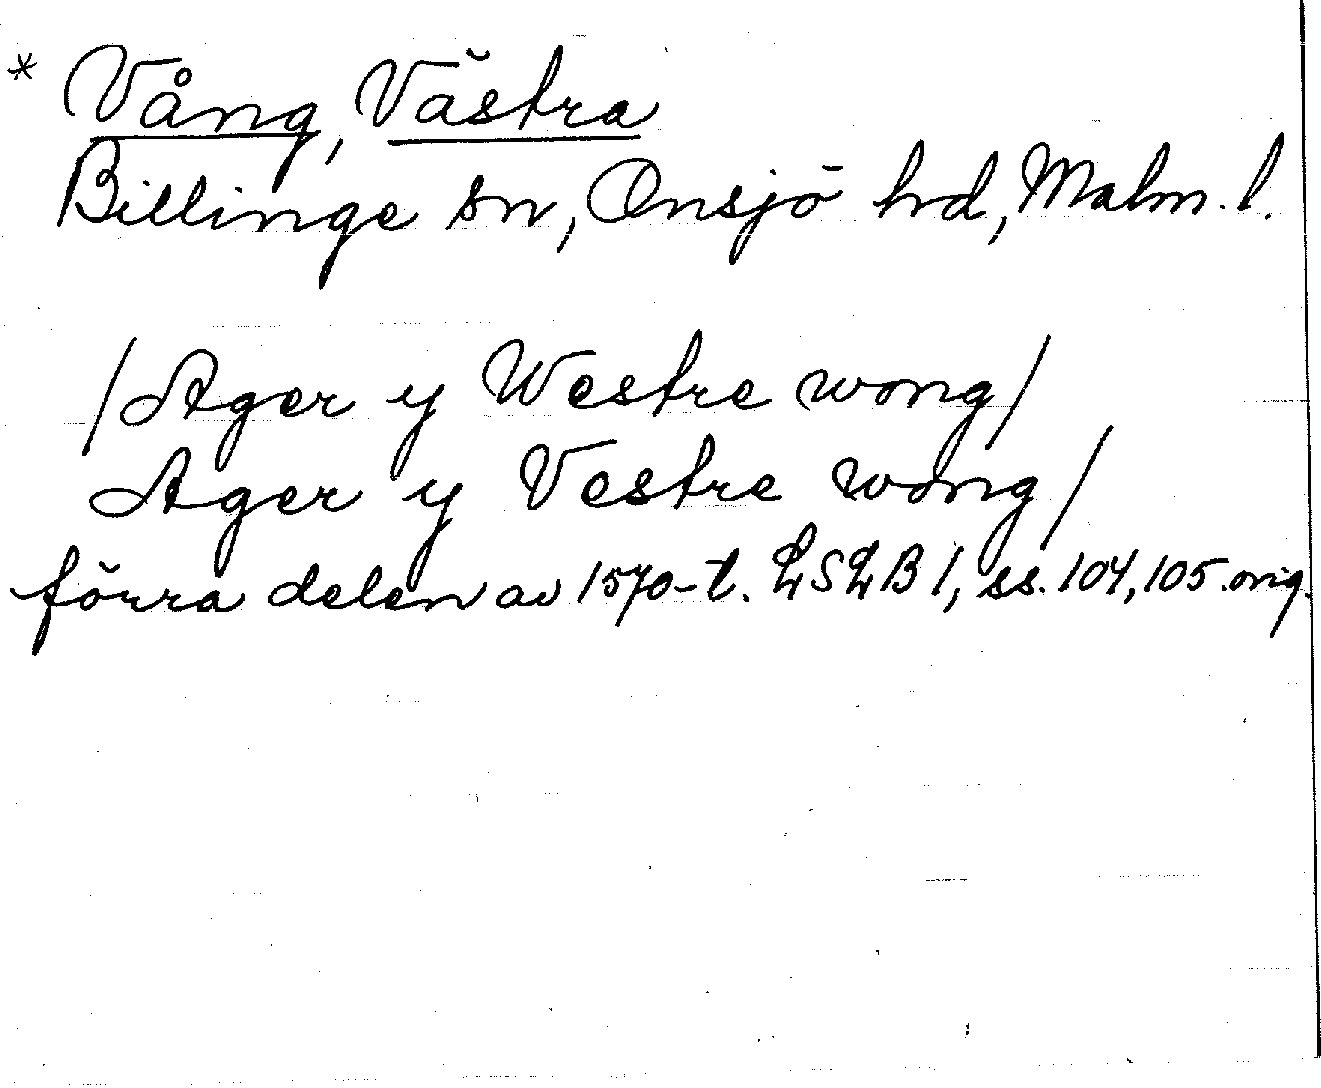 * Vång, Västra
Billinge sn, Onsjö hd, Malm. l.
/Ager y Westre wong/
Ager y Vestre wong/
förra delen av 1570-t. LSLB 1, ss. 104, 105 orig.